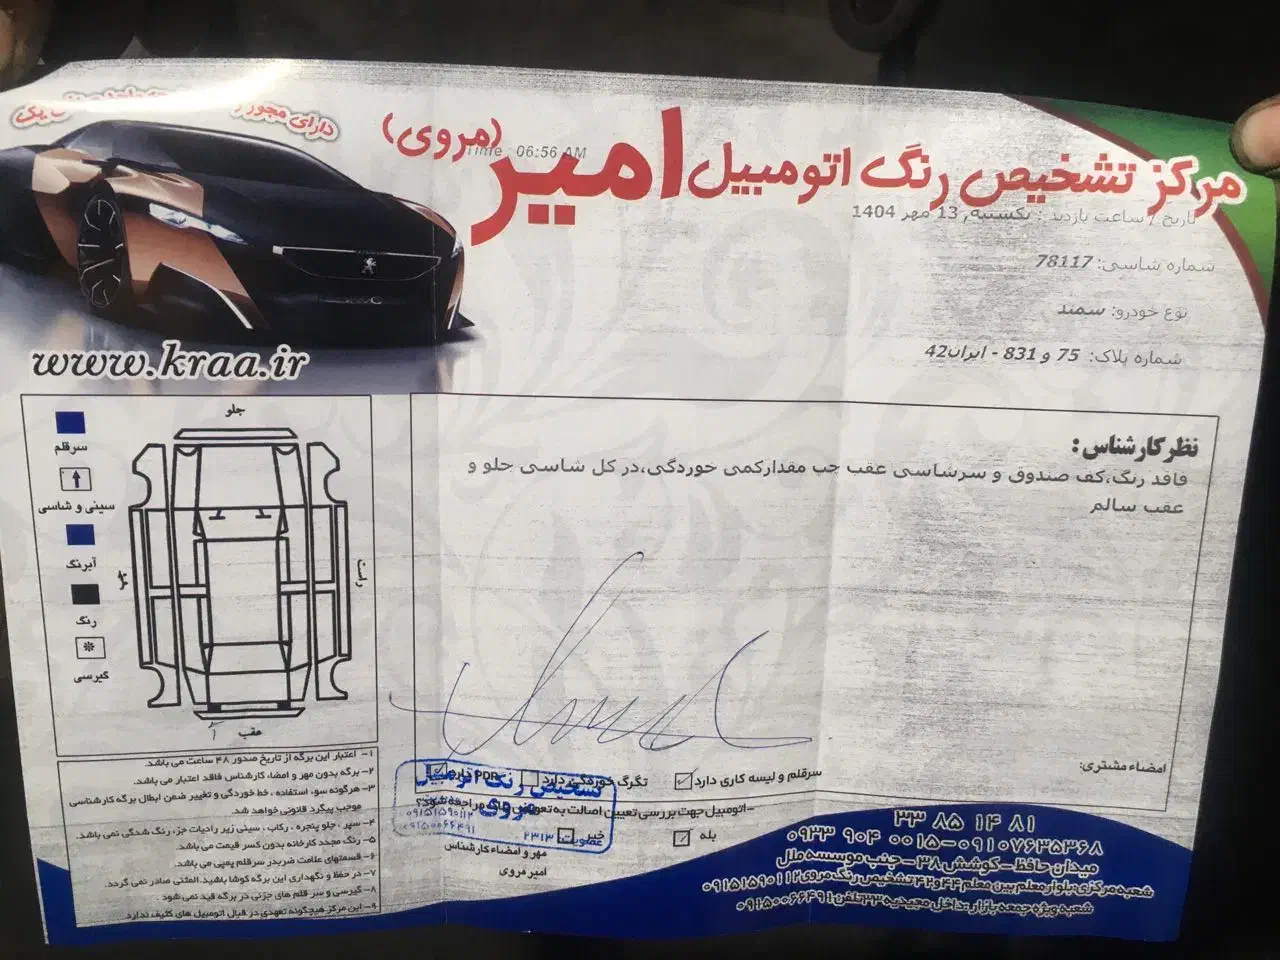 دارای مجوز
مرکز تشخیص رنگ اتومبیل امیر (مروی)
Time 06:56 AM
تاریخ / ساعت بازدید : یکشنبه, 13 مهر 1404
شماره شاسی: 78117
نوع خودرو: سمند
شماره پلاک: 75 و 831 - ایران42
www.kraa.ir
جلو
سرقلم
سینی و شاسی
آبرنگ
رنگ
گیرسی
راست
چپ
عقب
نظر کارشناس :
فاقد رنگ،کف صندوق و سرشاسی عقب چپ مقدارکمی خوردگی،در کل شاسی جلو و
عقب سالم
امضاء مشتری:
سرقلم و لیسه کاری دارد
تگرگ خوردگی دارد
PDR دارد
-اتومبیل جهت بررسی تعیین اصالت به تعویض پلاک مراجعه شود؟
بله
خیر
مهر و امضاء کارشناس
امیر مروی
تشخیص رنگ اتومبیل
مروی
۰۹۱۵۱۵۹۰۱۱۲
۰۹۱۵۰۰۶۶۴۹۱
عضویت: ۲۳۱۳
۱- اعتبار این برگه از تاریخ صدور ۴۸ ساعت می باشد.
۲- برگه بدون مهر و امضاء کارشناس فاقد اعتبار می باشد.
۳- هرگونه سوء استفاده ، خط خوردگی و تغییر ضمن ابطال برگه کارشناسی
موجب پیگرد قانونی خواهد شد.
۴- سپر ، جلو پنجره ، رکاب ، سینی زیر رادیات جزء رنگ شدگی نمی باشد.
۵- رنگ مجدد کارخانه بدون کسر قیمت می باشد.
۶- قسمتهای علامت ضربدر سرقلم پمپی می باشد.
۷- در حفظ و نگهداری این برگه کوشا باشید.المثنی صادر نمی گردد.
۸- گیرسی و سر قلم های جزئی در برگه قید نمی شود
۹- این مرکز هیچگونه تعهدی در قبال اتومبیل های کثیف ندارد.
۳۳ ۸۵ ۱۴ ۸۱
۰۹۳۳ ۹۰۴ ۰۰۱۵-۰۹۱۰۷۶۳۵۳۶۸
میدان حافظ - کوشش ۳۸ - جنب موسسه ملل
شعبه مرکزی: بلوار معلم بین معلم ۴۲ و ۴۴ تشخیص رنگ مروی ۰۹۱۵۱۵۹۰۱۱۲
شعبه ویژه جمعه بازار : داخل مجیدیه ۳۳ تلفن: ۰۹۱۵۰۰۶۶۴۹۱